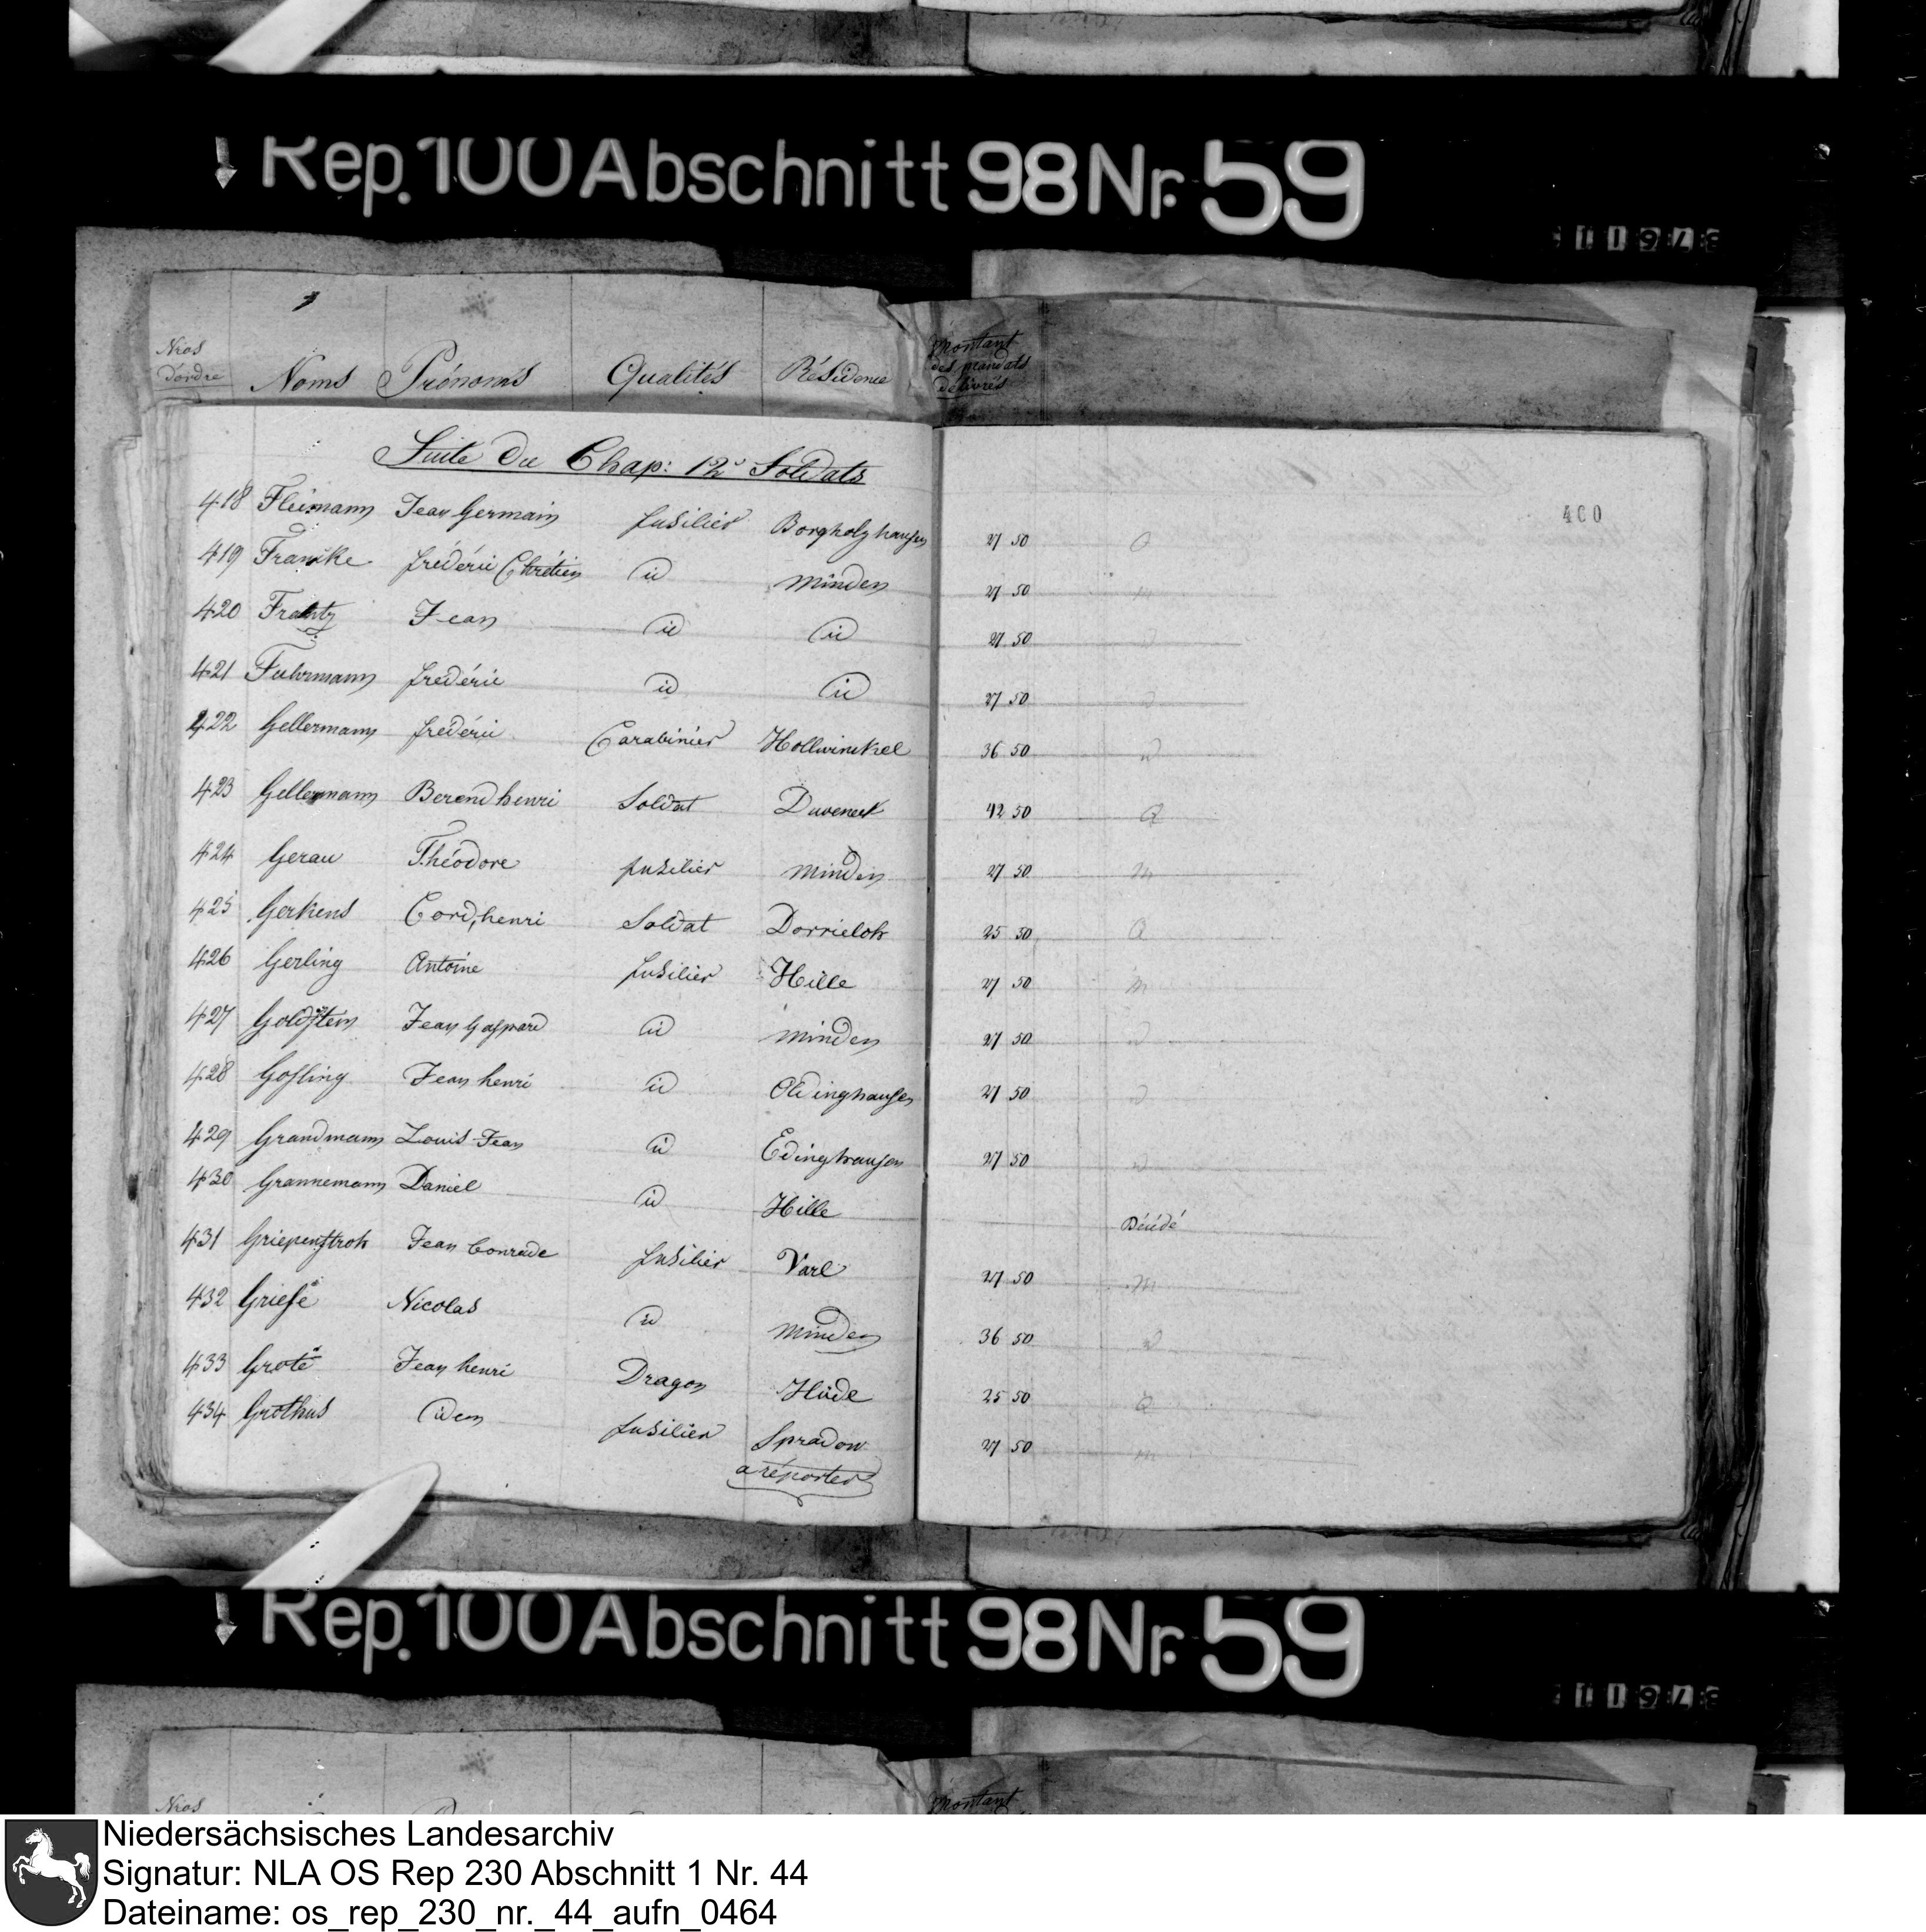 Rep. 100 Abschnitt 98 Nr. 59
Nros d'ordre Noms Prénoms Qualités Résidence Montant des mandats délivrés
Suite du Chap: 12e Soldats
400
418 Fleimann Jean Germain fusilier Borgholzhausen 27 50 O
419 Franke frédéric Chrétien id Minden 27 50 m
420 Frantz Jean id id 27 50 d
421 Fuhrmann frédéric id id 27 50 d
422 Gellermann frédéric Carabinier Hollwinckel 36 50 d
423 Gellermann Berend henri Soldat Duveneck 42 50 Q
424 Gerau Théodore fusilier Minden 27 50 m
425 Gerkens Cord, henri Soldat Dorrieloh 25 50 Q
426 Gerling Antoine fusilier Hille 27 50 m
427 Goldstein Jean Gaspard id Minden 27 50 d
428 Gosling Jean henri id Oldinghausen 27 50 d
429 Grandmann Louis Jean id Edinghausen 27 50 d
430 Grannemann Daniel id Hille Décédé
431 Griepenstroh Jean Conrade fusilier Varl 27 50 m
432 Griese Nicolas id Minden 36 50 d
433 Grote Jean henri Dragon Hüde 25 50 Q
434 Grothus idem fusilier Spradow 27 50 m
a réporter
Rep. 100 Abschnitt 98 Nr. 59
Nros
Montant
Niedersächsisches Landesarchiv
Signatur: NLA OS Rep 230 Abschnitt 1 Nr. 44
Dateiname: os_rep_230_nr._44_aufn_0464